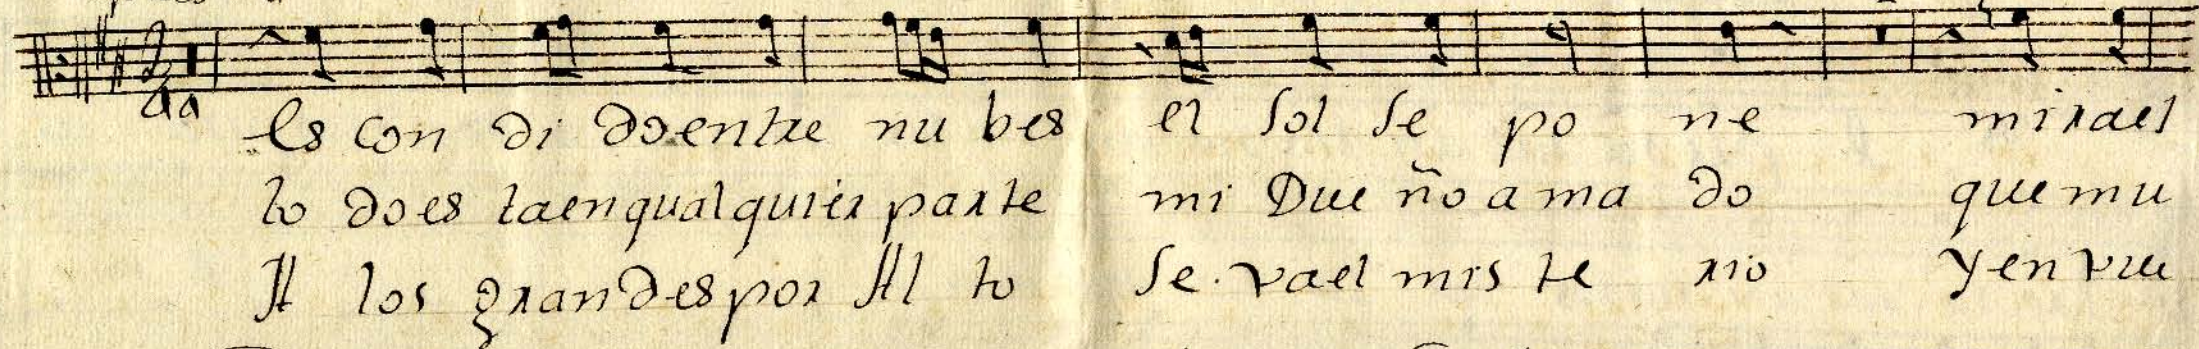 Es con di doentre nu bes el Sol Se po ne mirael
to does taenqualquier parte mi Due ño a ma do quemu
A los grandespor Al to Se. vael mis te rio Yenvue